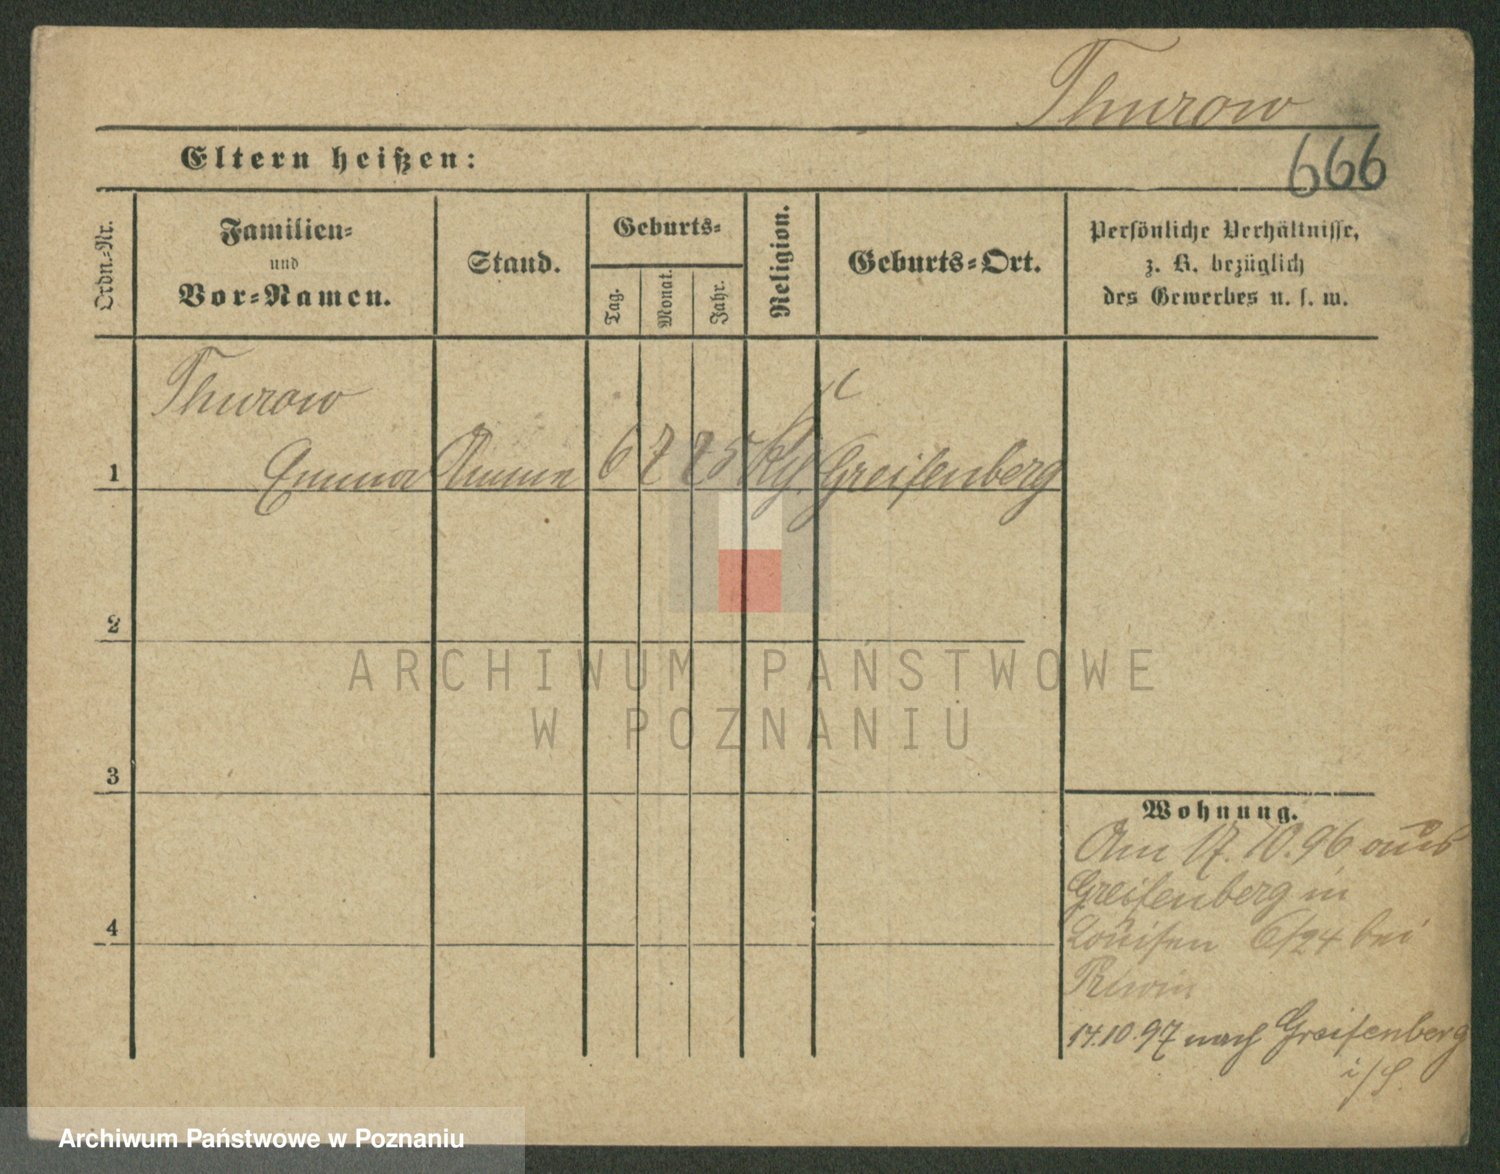 Thurow
Eltern heißen:
666
Ordn.-Nr.
Familien-
und
Vor-Namen.
Stand.
Geburts-
Tag.
Monat.
Jahr.
Religion.
Geburts-Ort.
Persönliche Verhältnisse,
z. B. bezüglich
des Gewerbes u. s. w.
Thurow
1 Emma Amme 6 7 75 Greifenberg
2
3
4
Wohnung.
Am 17.10.96 aus
Greifenberg in
Louisen 6/24 bei
17.10.97 nach Greifenberg
i/P.
ARCHIWUM PAŃSTWOWE
W POZNANIU
Archiwum Państwowe w Poznaniu